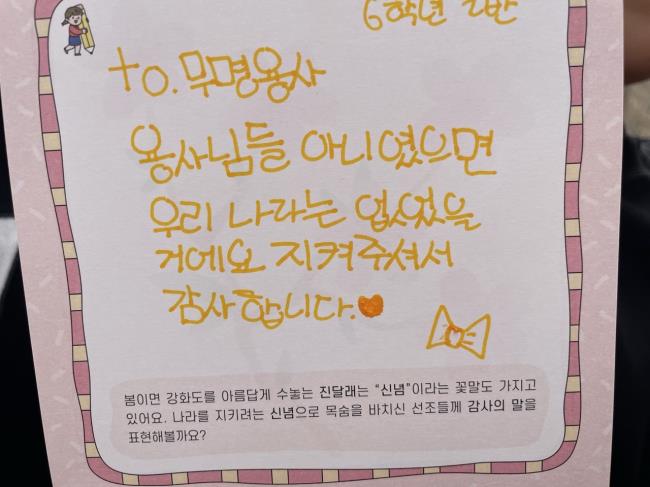 6학년 2반
to. 무명용사
용사님들 아니였으면
우리 나라는 없었을
거에요 지켜주셔서
감사합니다.
봄이면 강화도를 아름답게 수놓는 진달래는 “신념”이라는 꽃말도 가지고
있어요. 나라를 지키려는 신념으로 목숨을 바치신 선조들께 감사의 말을
표현해볼까요?